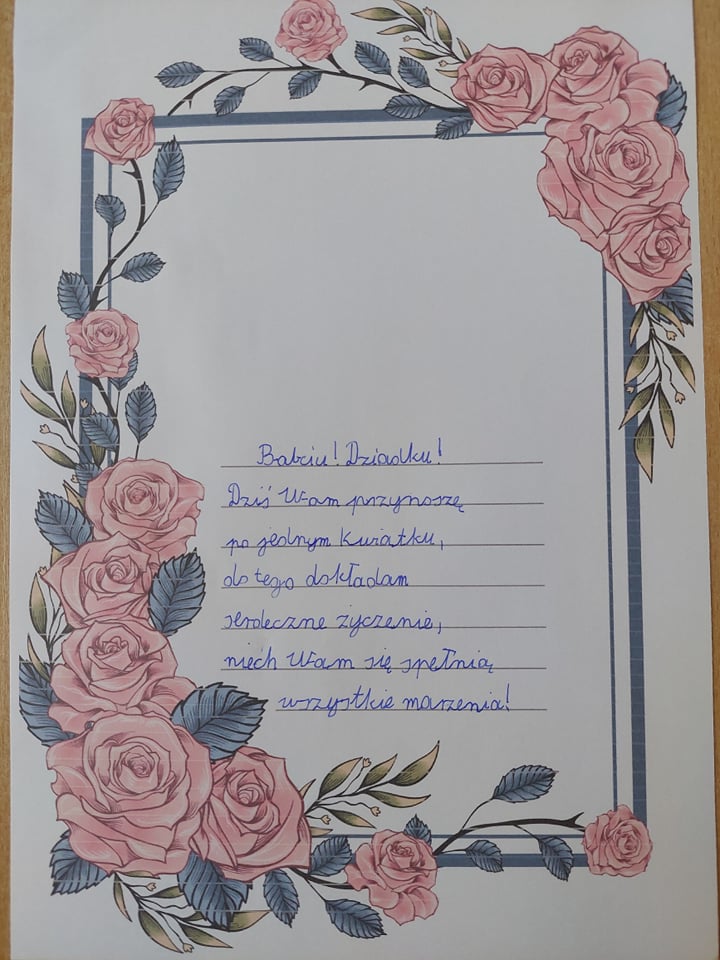 Babciu! Dziadku!
Dziś Wam przynoszę
po jednym kwiatku,
do tego dokładam
serdeczne życzenie,
niech Wam się spełnią
wszystkie marzenia!